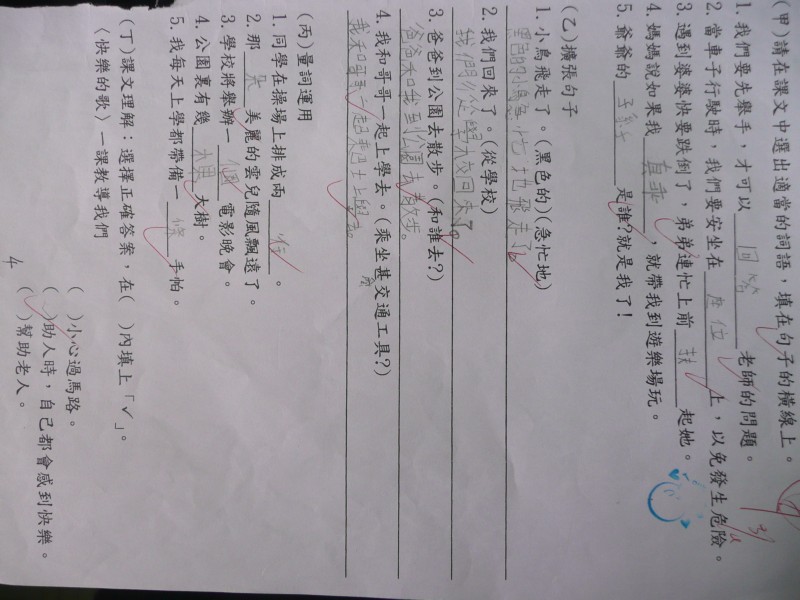 (甲)請在課文中選出適當的詞語，填在句子的橫線上。
1. 我們要先舉手，才可以 回答 老師的問題。
2. 當車子行駛時，我們要安坐在 座位 上，以免發生危險。
3. 遇到婆婆快要跌倒了，弟弟連忙上前 扶 起她。
4. 媽媽說如果我 乖乖 ，就帶我到遊樂場玩。
5. 爺爺的 是誰?就是我了!
(乙)擴張句子
1. 小鳥飛走了。(黑色的)(急忙地)
黑色的小鳥急忙地飛走了。
2. 我們回來了。(從學校)
我們從學校回來了。
3. 爸爸到公園去散步。(和誰去?)
爸爸和我到公園去散步。
4. 我和哥哥一起上學去。(乘坐甚麼交通工具?)
我和哥哥一起乘巴士上學去。
(丙)量詞運用
1. 同學在操場上排成兩 行 。
2. 那 朵 美麗的雲兒隨風飄遠了。
3. 學校將舉辦一 個 電影晚會。
4. 公園裏有幾 棵 大樹。
5. 我每天上學都帶備一 條 手帕。
(丁)課文理解：選擇正確答案，在( )內填上「✓」。
〈快樂的歌〉一課教導我們
( )小心過馬路。
( )助人時，自己都會感到快樂。
(✓)幫助老人。
4